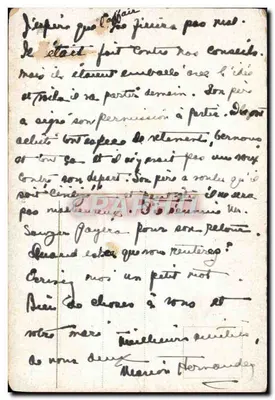 l'affair
J'espère que ne finira pas mal.
Il était fait contre nos conseils.
Mais il étaient emballé avec l'idée
et voila il va partir demain. Son père
a signé son permission à partir. Ils ont
acheté tout de vetements,
et tout ça et il n'y avait pas un mot
contre son depart. Son père a voulu qu'il
soit il ne sera
pas
payera pour son retour.
Quand est-ce que vous rentrerez?
Ecrivez moi un petit mot.
Bien de choses à vous et
votre mari. Meilleures amitiés
de nous deux
Marion Hernandez